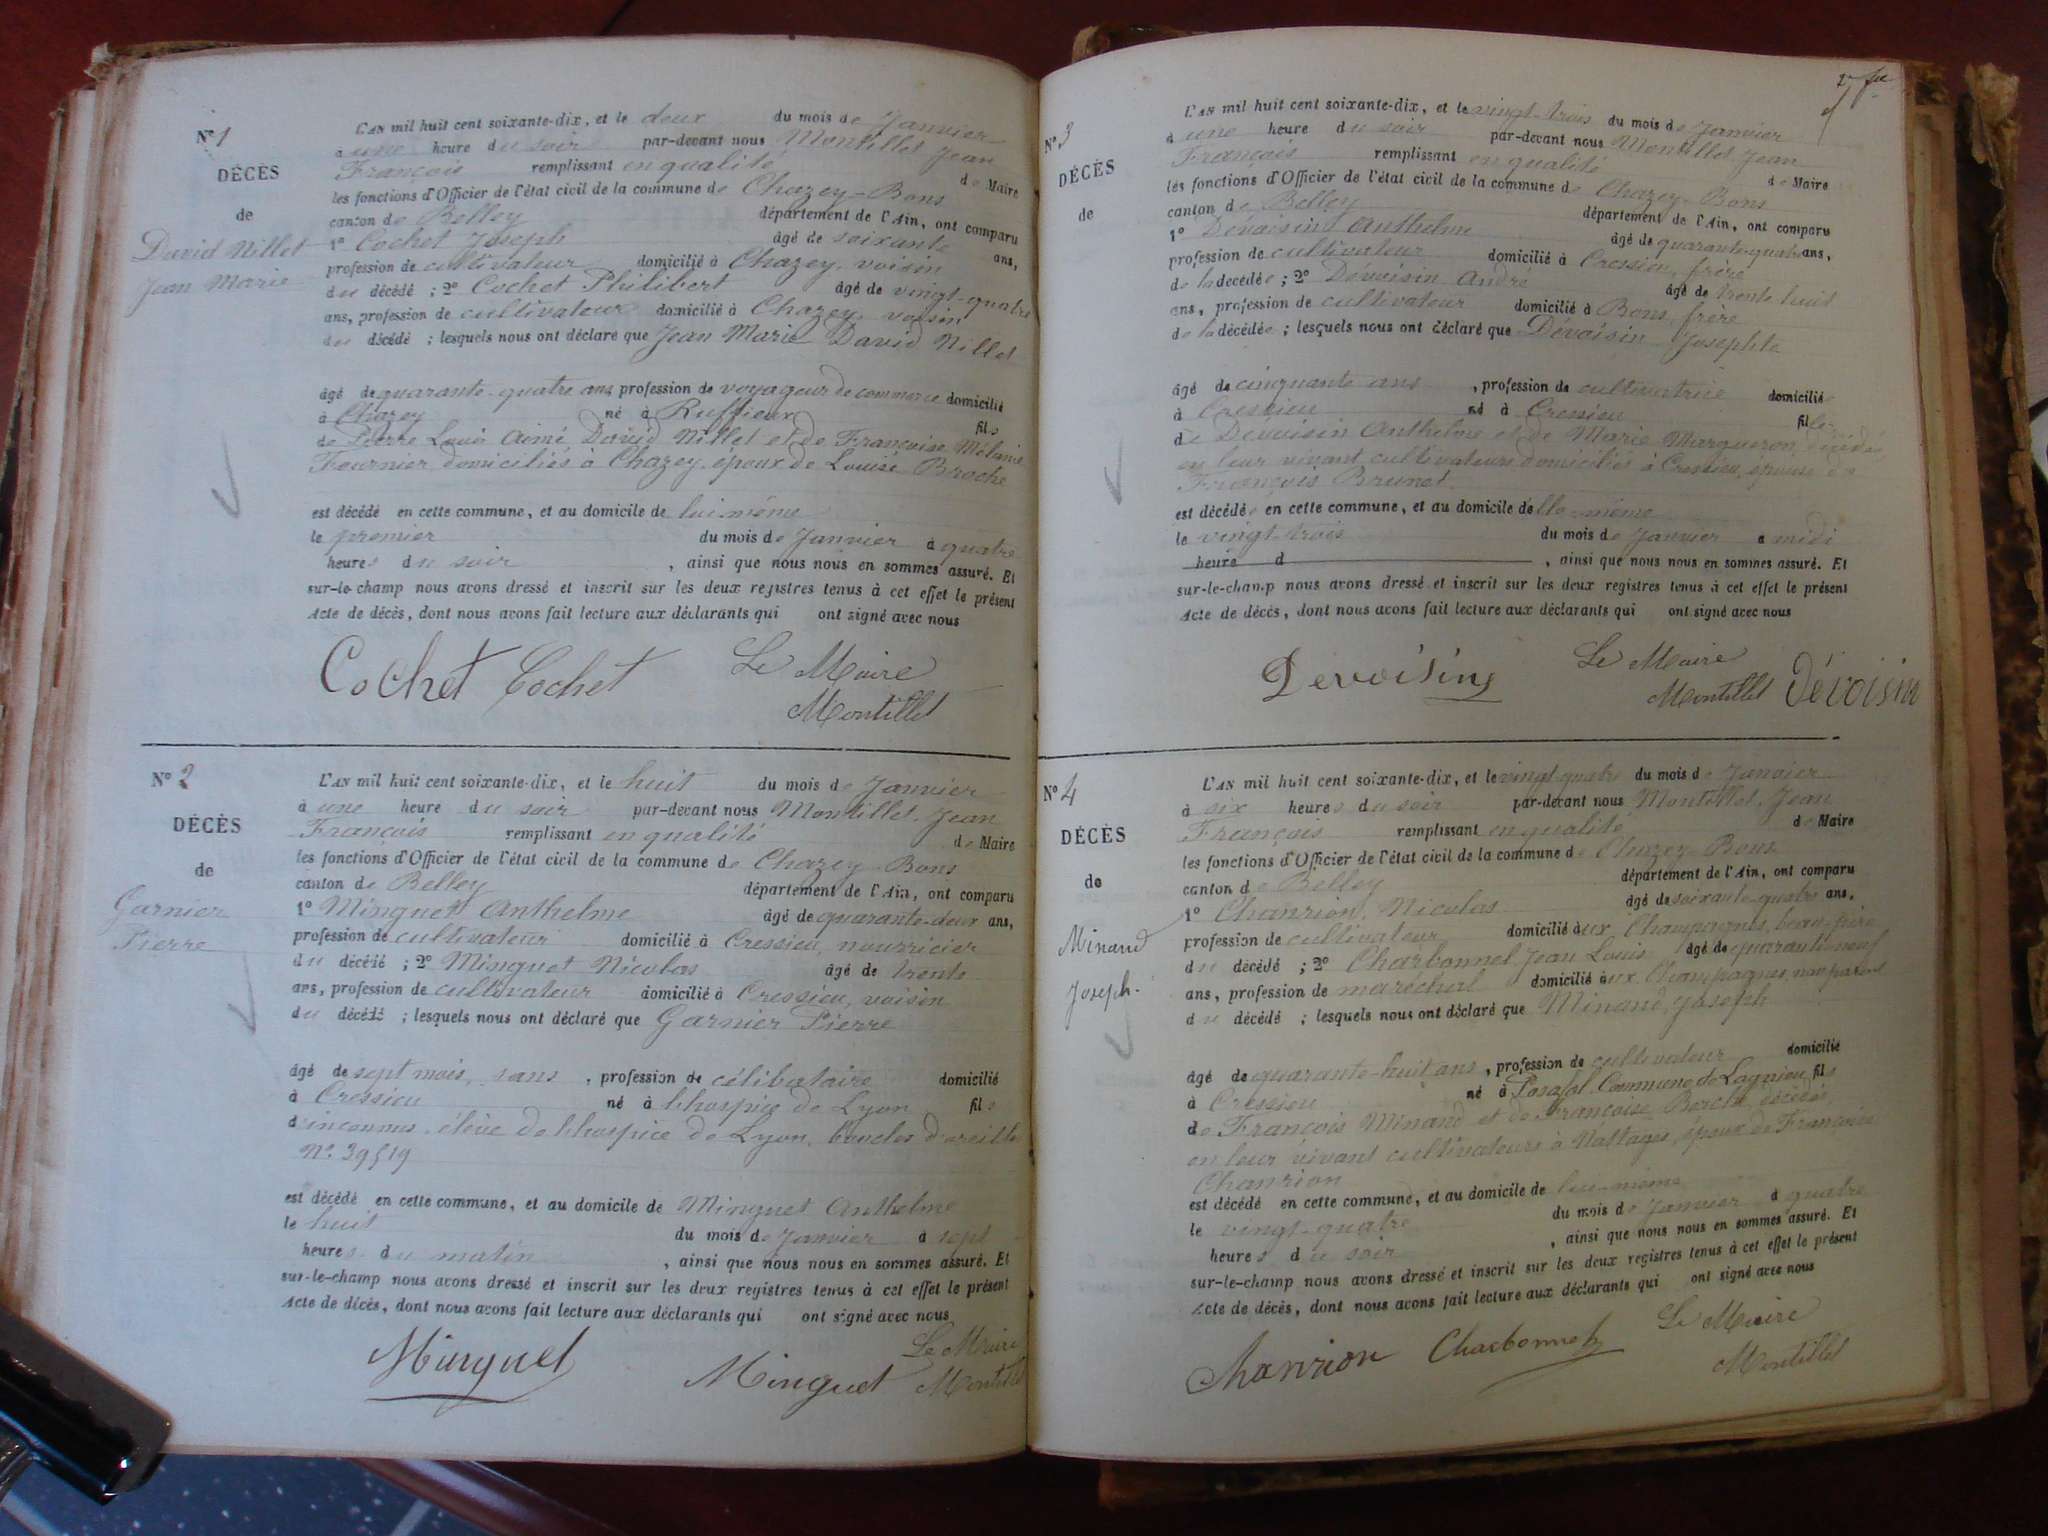 N° 1
DÉCÈS
de
David Nillet
Jean Marie
L'AN mil huit cent soixante-dix, et le deux du mois de Janvier
à une heure du soir par-devant nous Montillet Jean
François remplissant en qualité de Maire
les fonctions d'Officier de l'état civil de la commune de Chazey-Bons
canton de Belley département de l'Ain, ont comparu
1° Cochet Joseph âgé de soixante ans,
profession de cultivateur domicilié à Chazey, voisin
du décédé ; 2° Cochet Philibert âgé de vingt-quatre
ans, profession de cultivateur domicilié à Chazey, voisin
du décédé ; lesquels nous ont déclaré que Jean Marie David Nillet
âgé de quarante-quatre ans profession de voyageur de commerce domicilié
à Chazey né à Ruffieux fils
de Pierre Louis Aimé David Nillet et de Françoise Mélanie
Fournier domiciliés à Chazey, époux de Louise Broche
est décédé en cette commune, et au domicile de lui-même
le premier du mois de Janvier à quatre
heures du soir , ainsi que nous nous en sommes assuré. Et
sur-le-champ nous avons dressé et inscrit sur les deux registres tenus à cet effet le présent
Acte de décès, dont nous avons fait lecture aux déclarants qui ont signé avec nous
Cochet Cochet Le Maire
Montillet
N° 2
DÉCÈS
de
Garnier
Pierre
L'AN mil huit cent soixante-dix, et le huit du mois de Janvier
à une heure du soir par-devant nous Montillet, Jean
François remplissant en qualité de Maire
les fonctions d'Officier de l'état civil de la commune de Chazey-Bons
canton de Belley département de l'Ain, ont comparu
1° Minguet Anthelme âgé de quarante-deux ans,
profession de cultivateur domicilié à Cressieu, nourricier
du décédé ; 2° Minguet Nicolas âgé de trente
ans, profession de cultivateur domicilié à Cressieu, voisin
du décédé ; lesquels nous ont déclaré que Garnier Pierre
âgé de sept mois, sans , profession de célibataire domicilié
à Cressieu né à l'hospice de Lyon fils
d'inconnus, élève de l'hospice de Lyon, boucles d'oreilles
N° 39519
est décédé en cette commune, et au domicile de Minguet Anthelme
le huit du mois de Janvier à sept
heures du matin , ainsi que nous nous en sommes assuré. Et
sur-le-champ nous avons dressé et inscrit sur les deux registres tenus à cet effet le présent
Acte de décès, dont nous avons fait lecture aux déclarants qui ont signé avec nous
Minguet Minguet Le Maire
Montillet
N° 3
DÉCÈS
de
L'AN mil huit cent soixante-dix, et le vingt-trois du mois de Janvier
à une heure du soir par-devant nous Montillet, Jean
François remplissant en qualité de Maire
les fonctions d'Officier de l'état civil de la commune de Chazey-Bons
canton de Belley département de l'Ain, ont comparu
1° Dévoisin Anthelme âgé de quarante-quatre ans,
profession de cultivateur domicilié à Cressieu, frère
de la décédée ; 2° Dévoisin André âgé de trente huit
ans, profession de cultivateur domicilié à Bons, frère
de la décédée ; lesquels nous ont déclaré que Dévoisin Josephte
âgé de cinquante ans , profession de cultivatrice domiciliée
à Cressieu né à Cressieu fille
de Dévoisin Anthelme et de Marie Marqueron décédés
en leur vivant cultivateurs domiciliés à Cressieu, épouse de
François Brunet.
est décédée en cette commune, et au domicile d'elle-même
le vingt-trois du mois de Janvier à midi
heure d , ainsi que nous nous en sommes assuré. Et
sur-le-champ nous avons dressé et inscrit sur les deux registres tenus à cet effet le présent
Acte de décès, dont nous avons fait lecture aux déclarants qui ont signé avec nous
Devoisin Le Maire
Montillet Dévoisin
N° 4
DÉCÈS
de
Minand
Joseph.
L'AN mil huit cent soixante-dix, et le vingt-quatre du mois de Janvier
à six heures du soir par-devant nous Montillet, Jean
François remplissant en qualité de Maire
les fonctions d'Officier de l'état civil de la commune de Chazey-Bons
canton de Belley département de l'Ain, ont comparu
1° Chanrion, Nicolas âgé de soixante-quatre ans,
profession de cultivateur domicilié aux Champagnes, beau-père
du décédé ; 2° Charbonnet, Jean Louis âgé de quarante-neuf
ans, profession de maréchal domicilié aux Champagnes, non parent
du décédé ; lesquels nous ont déclaré que Minand, Joseph
âgé de quarante-huit ans , profession de cultivateur domicilié
à Cressieu né à Posafol Commune de Lagnieu fils
de François Minand et de Françoise décédés
en leur vivant cultivateurs à Nattages, époux de Françoise
Chanrion
est décédé en cette commune, et au domicile de lui-même
le vingt-quatre du mois de Janvier à quatre
heures du soir , ainsi que nous nous en sommes assuré. Et
sur-le-champ nous avons dressé et inscrit sur les deux registres tenus à cet effet le présent
Acte de décès, dont nous avons fait lecture aux déclarants qui ont signé avec nous
Chanrion Charbonnet Le Maire
Montillet